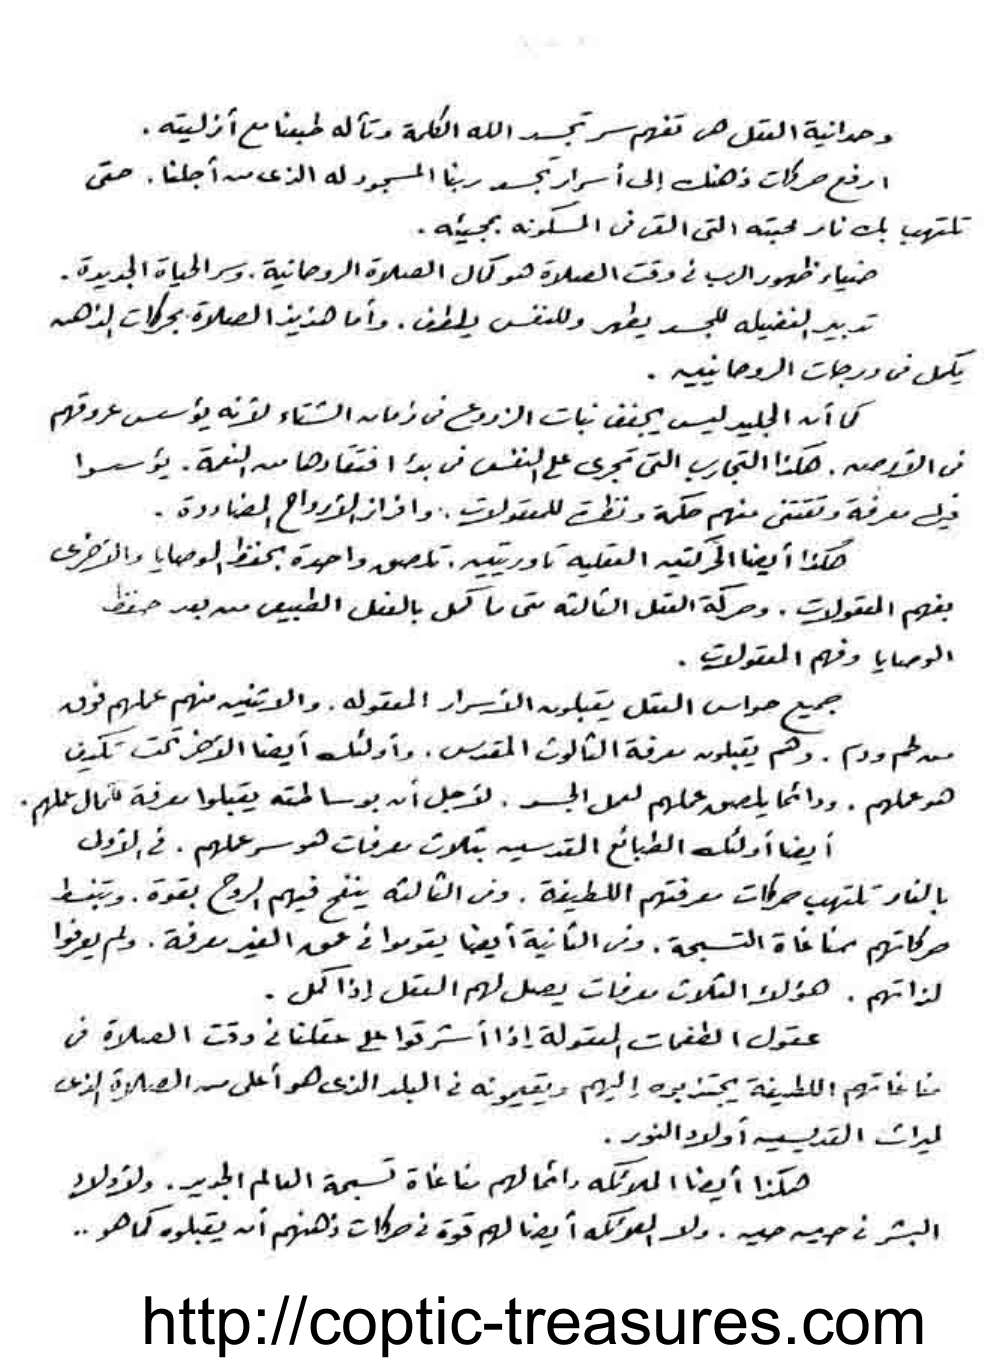 وحدانية العقل هى تفهم سر تجسد الله الكلمة وتأله طبعنا مع أزليته .
ارفع حركات ذهنك إلى أسرار تجسد ربنا المسجود له الذى من أجلنا . حتى
تلتهب بك نار محبته التى القى فى المسكونه بمجيئه .
ضياء ظهور الرب فى وقت الصلاة هو كمال الصلاة الروحانية . وسر الحياة الجديدة .
تدبير الفضيله للجسد يطهر وللنفس يلطف . وأما هذيذ الصلاة بحركات الذهن
يكمل فى درجات الروحانيين .
كما أن الجليد ليس يجفف نبات الزروع فى زمان الشتاء لأنه يؤسس عروقهم
فى الأرض . هكذا التجارب التى تجرى على النفس فى بدؤ افتقادها من النعمة . يؤسسوا
فيها معرفة وتقتنى منهم حكمة ونظرت للمعقولات . وافراز الأرواح المضاددة .
هكذا أيضا الحركتين العقليه تاوريتين . تلصق واحدة بحفظ الوصايا والأخرى
بفهم المعقولات . وحركة العقل الثالثه متى ما كمل بالفعل الطبيعى من بعد حفظ
الوصايا وفهم المعقولات .
جميع حواس العقل يقبلون الأسرار المعقوله . والاثنين منهم عملهم فوق
من لحم ودم . وهم يقبلون معرفة الثالوث المقدس . وأولئك أيضا الأخر تحت تكوين
هو عملهم . ودائما يلصق عملهم لعمل الجسد . لأجل أن بوساطته يقبلوا معرفة لكمال عملهم .
أيضا أولئك الطبائع القدسين بثلاث معرفات هو سر عملهم . فى الأول
بالنار تلتهب حركات معرفتهم اللطيفة . وفى الثالثه ينفخ فيهم الروح بقوة . وتبسط
حركاتهم بمناغاة التسبحة . وفى الثانية أيضا يقوموا فى عمق الغير معرفة . ولم يعرفوا
لذاتهم . هؤلاء الثلاث معرفات يصل لهم العقل إذا كمل .
عقول الطغمات المعقولة إذا أشرقوا على عقلنا فى وقت الصلاة فى
مناغاتهم اللطيفة يجتذبوه إليهم ويقيمونه فى البلد الذى هو أعلى من الصلاة الذى
لميراث القديسين أولاد النور .
هكذا أيضا الملائكه دائما لهم مناغاة تسبحة العالم الجديد . ولأولاد
البشر فى حين حين . ولا الملائكه أيضا لهم قوة فى حركات ذهنهم أن يقبلوه كما هو ..
http://coptic-treasures.com